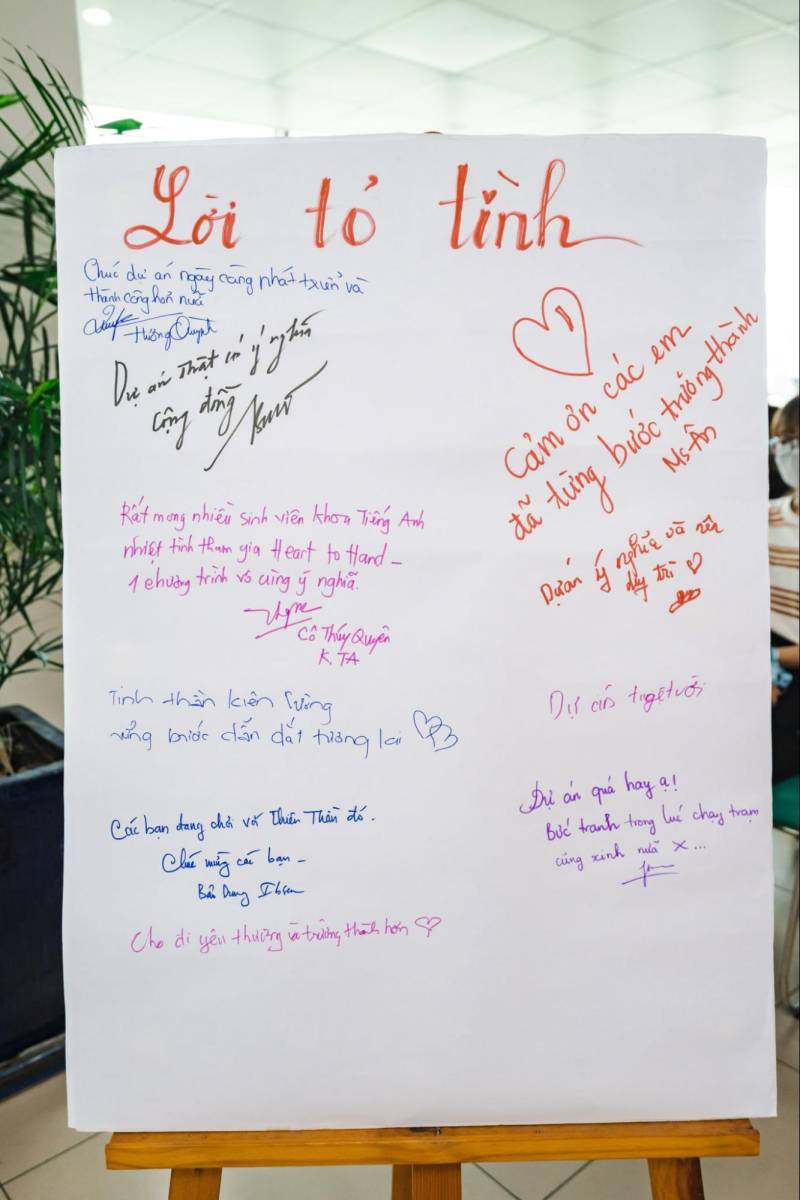 Lời tỏ tình
Chúc dự án ngày càng phát triển và
thành công hơn nữa
Hương Quỳnh
Dự án thật có ý nghĩa
cộng đồng
Cảm ơn các em
đã từng bước trưởng thành
Ms Ân
Rất mong nhiều sinh viên khoa Tiếng Anh
nhiệt tình tham gia Heart to Hand –
1 chương trình vô cùng ý nghĩa.
Cô Thúy Quyên
K. TA
Dự án ý nghĩa và nên
duy trì
Tinh thần kiên cường
vững bước dẫn dắt tương lai
Dự án tuyệt vời
Dự án quá hay ạ!
Bức tranh trong lúc chạy trạm
cũng xinh nữa X...
Các bạn đang chơi với Thiên Thần đó.
Chúc mừng các bạn –
Cho đi yêu thương và trưởng thành hơn